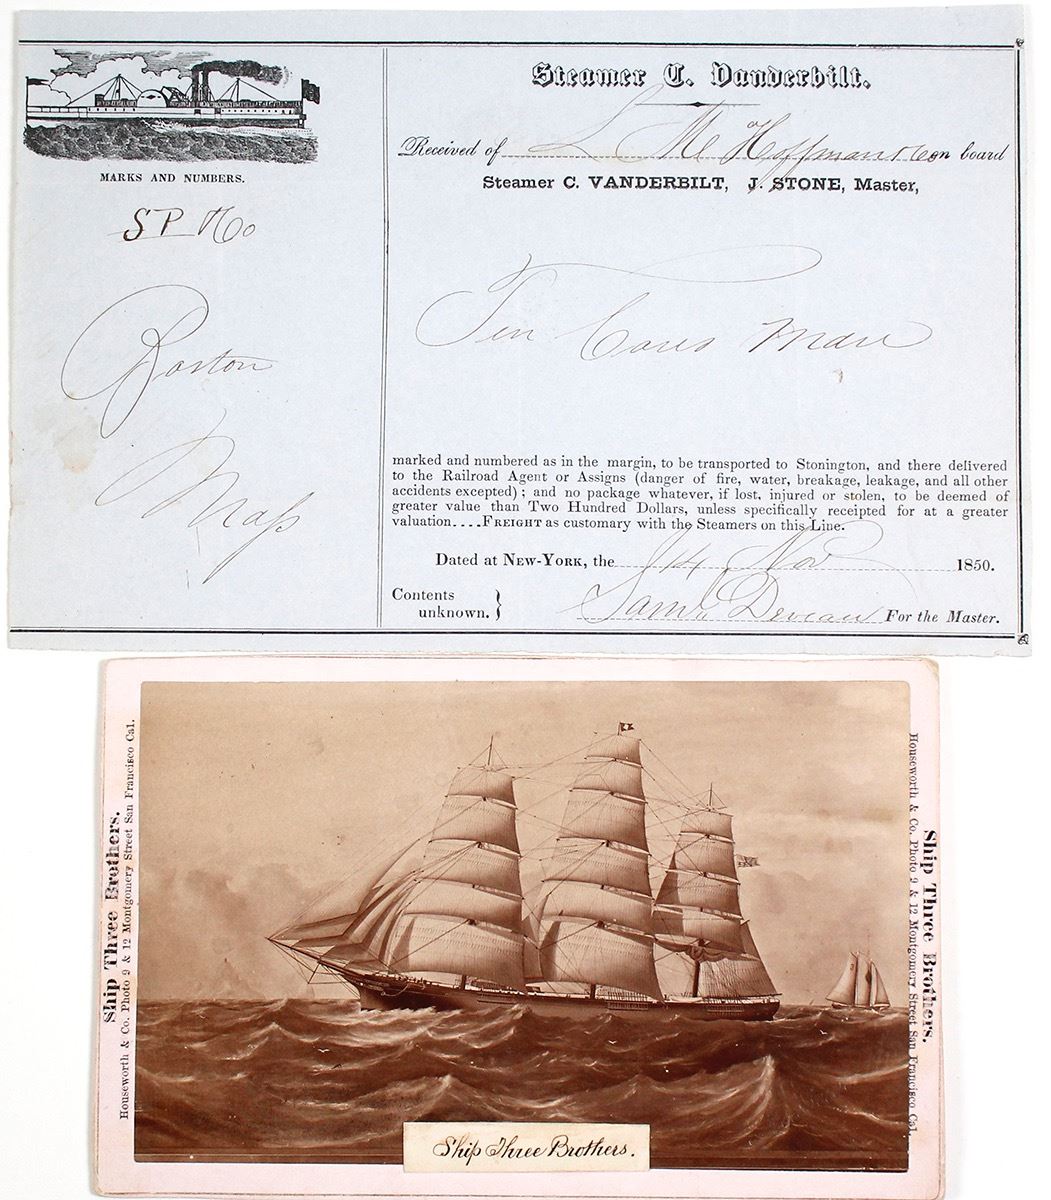 Steamer C. Vanderbilt.
Received of L M Hoffman & Co on board
Steamer C. VANDERBILT, J. STONE, Master,
MARKS AND NUMBERS.
S P & Co
Boston
Mass
Ten
marked and numbered as in the margin, to be transported to Stonington, and there delivered
to the Railroad Agent or Assigns (danger of fire, water, breakage, leakage, and all other
accidents excepted); and no package whatever, if lost, injured or stolen, to be deemed of
greater value than Two Hundred Dollars, unless specifically receipted for at a greater
valuation....FREIGHT as customary with the Steamers on this Line.
Dated at NEW-YORK, the 14 Nov 1850.
Contents
unknown.
Saml. Deveau For the Master.
Ship Three Brothers.
Houseworth & Co. Photo 9 & 12 Montgomery Street San Francisco Cal.
Ship Three Brothers.
Houseworth & Co. Photo 9 & 12 Montgomery Street San Francisco Cal.
Ship Three Brothers.